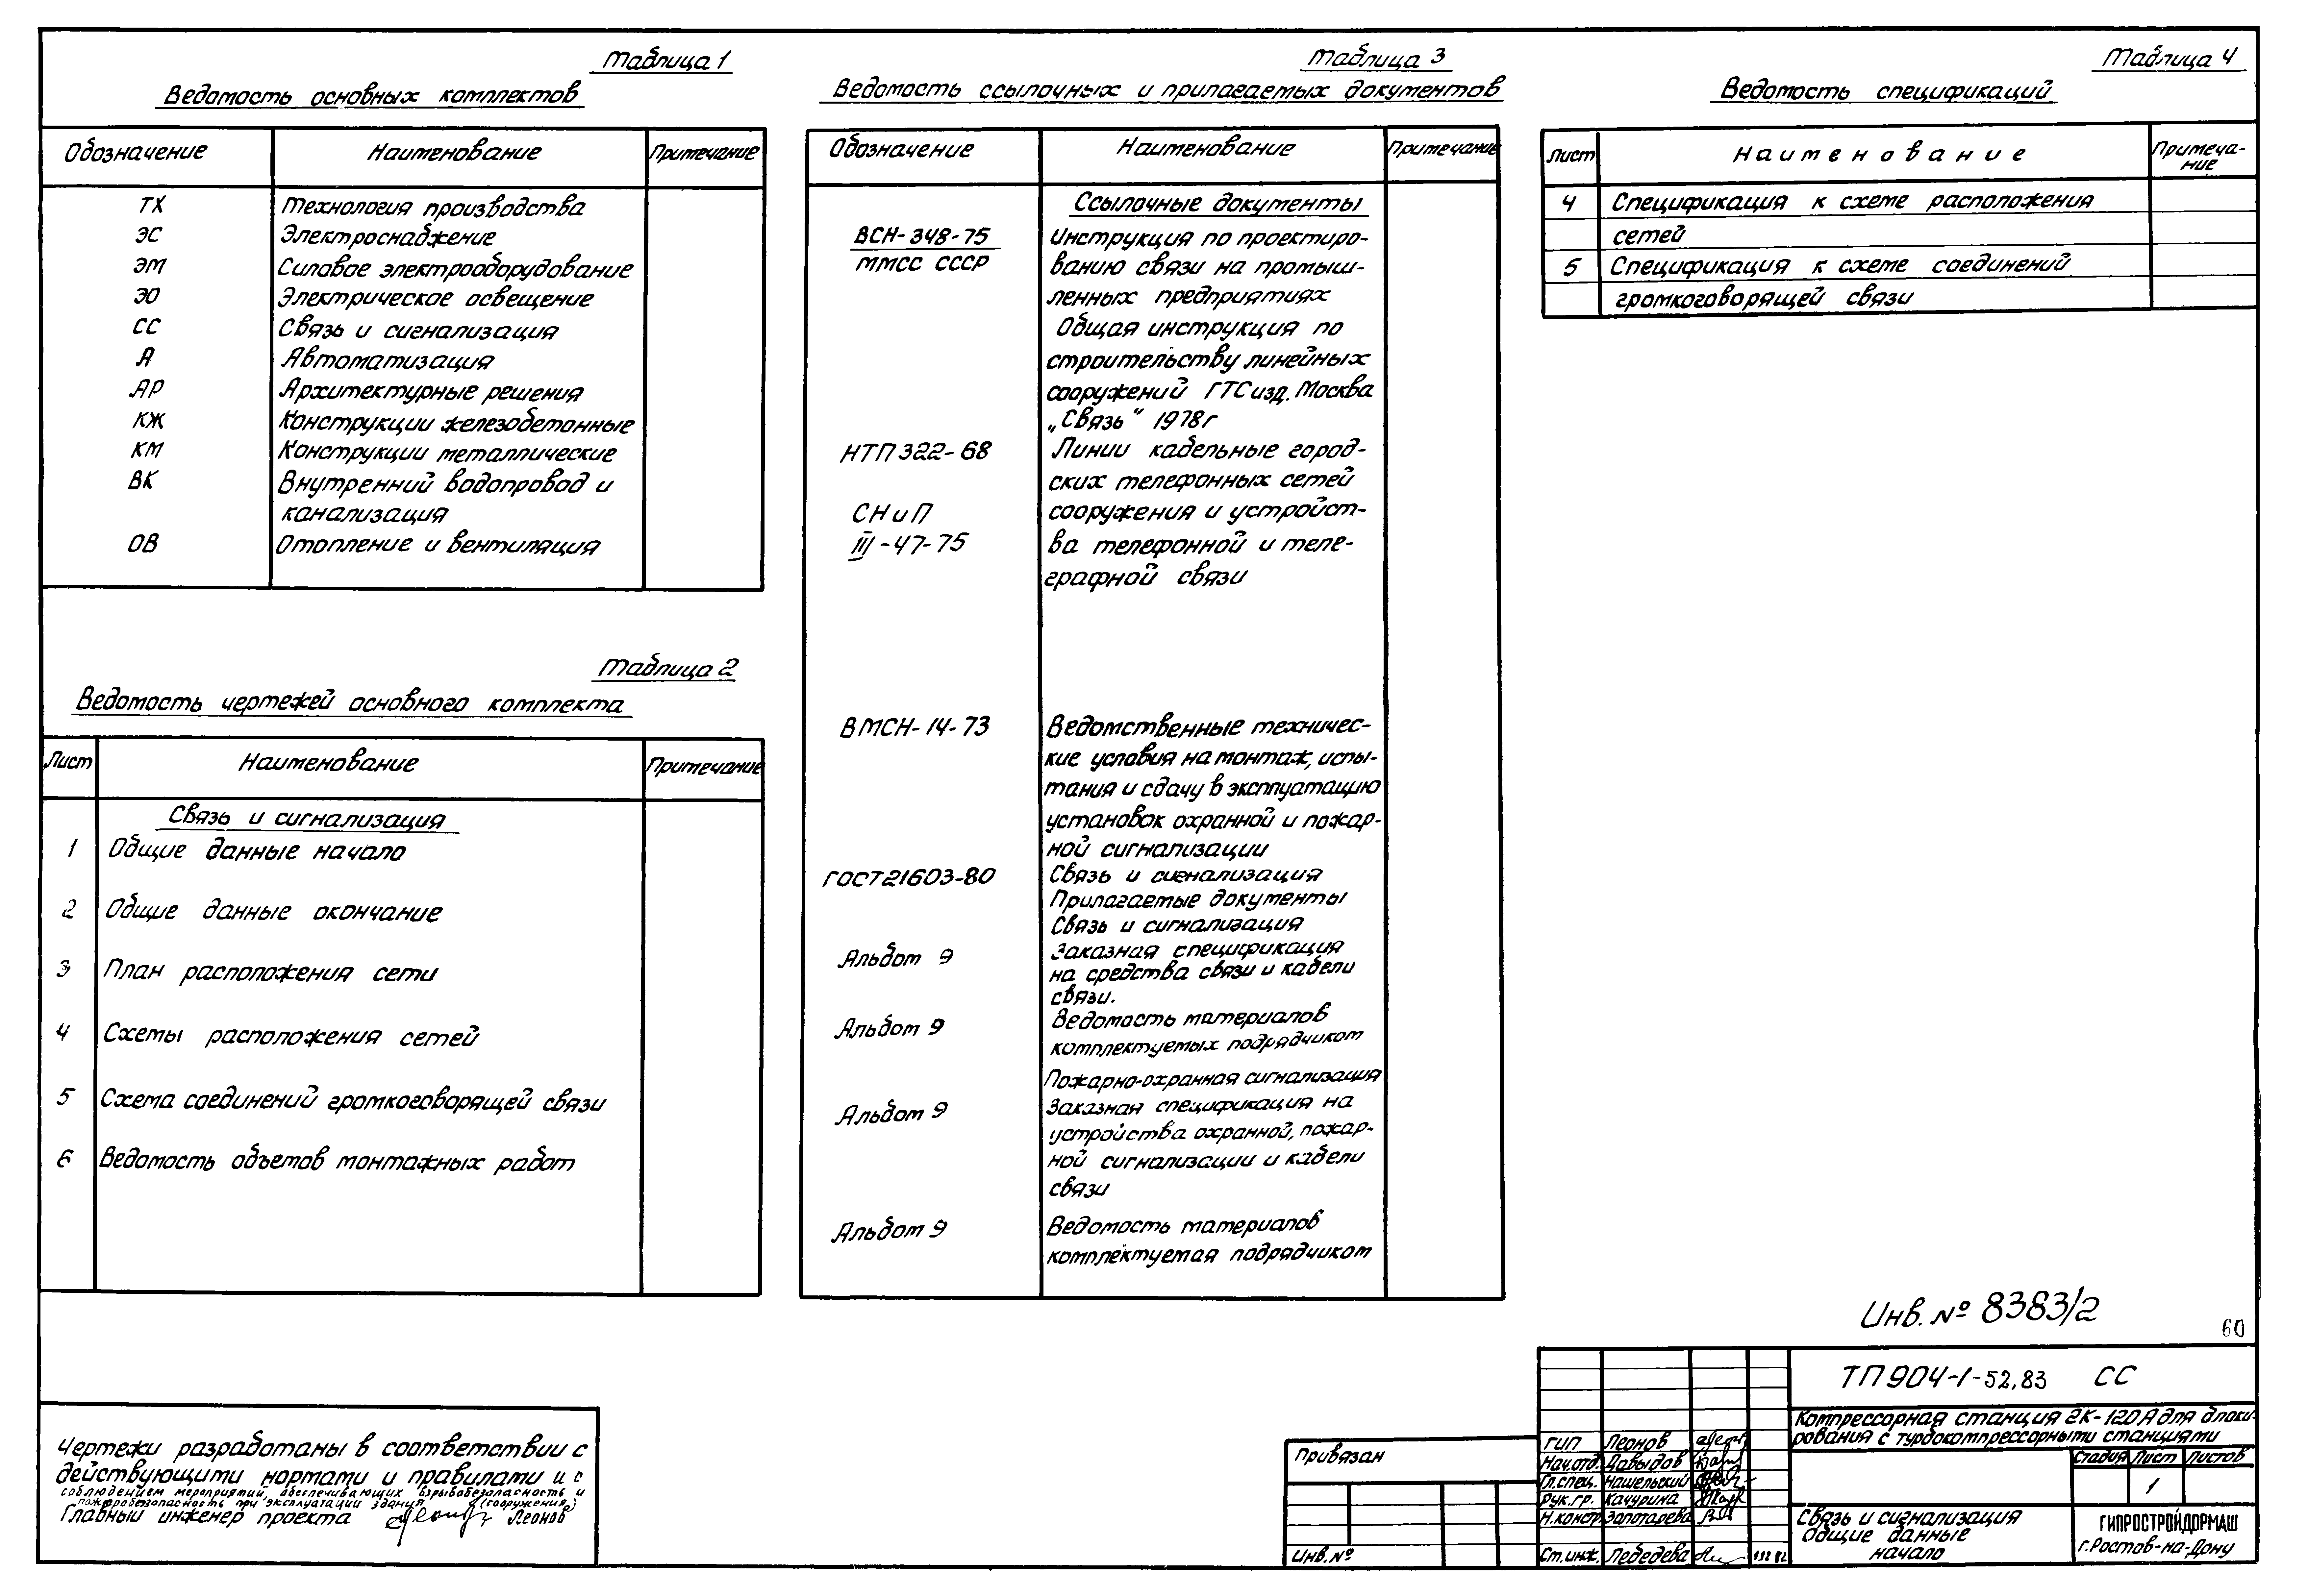 Таблица 1
Ведомость основных комплектов
Обозначение Наименование Примечание
ТХ Технология производства
ЭС Электроснабжение
ЭМ Силовое электрооборудование
ЭО Электрическое освещение
СС Связь и сигнализация
А Автоматизация
АР Архитектурные решения
КЖ Конструкции железобетонные
КМ Конструкции металлические
ВК Внутренний водопровод и
канализация
ОВ Отопление и вентиляция
Таблица 2
Ведомость чертежей основного комплекта
Лист Наименование Примечание
Связь и сигнализация
1 Общие данные начало
2 Общие данные окончание
3 План расположения сети
4 Схемы расположения сетей
5 Схема соединений громкоговорящей связи
6 Ведомость объемов монтажных работ
Чертежи разработаны в соответствии с
действующими нормами и правилами и с
соблюдением мероприятий, обеспечивающих взрывобезопасность и
пожаробезопасность при эксплуатации здания (сооружения)
Главный инженер проекта Леонов
Таблица 3
Ведомость ссылочных и прилагаемых документов
Обозначение Наименование Примечание
Ссылочные документы
ВСН-348-75 Инструкция по проектиро-
ММСС СССР ванию связи на промыш-
ленных предприятиях
Общая инструкция по
строительству линейных
сооружений ГТС изд. Москва
„Связь“ 1978г
НТП 322-68 Линии кабельные город-
ских телефонных сетей
СНиП сооружения и устройст-
III-47-75 ва телефонной и теле-
графной связи
ВМСН-14-73 Ведомственные техничес-
кие условия на монтаж, испы-
тания и сдачу в эксплуатацию
установок охранной и пожар-
ной сигнализации
ГОСТ 21603-80 Связь и сигнализация
Прилагаемые документы
Связь и сигнализация
Альбом 9 Заказная спецификация
на средства связи и кабели
связи.
Альбом 9 Ведомость материалов
комплектуемых подрядчиком
Пожарно-охранная сигнализация
Альбом 9 Заказная спецификация на
устройства охранной, пожар-
ной сигнализации и кабели
связи
Альбом 9 Ведомость материалов
комплектуемая подрядчиком
Таблица 4
Ведомость спецификаций
Лист Наименование Примеча-
ние
4 Спецификация к схеме расположения
сетей
5 Спецификация к схеме соединений
громкоговорящей связи
Инв. № 8383/2
60
Привязан
Инв.№
ГИП Леонов
Нач.отд. Давыдов
Гл.спец. Нашельский
Рук.гр. Качурина
Н.констр. Золотарева
Ст.инж. Лебедева
ТП 904-1-52.83 СС
Компрессорная станция 2К-120А для блоки-
рования с турбокомпрессорными станциями
Стадия Лист Листов
1
Связь и сигнализация
Общие данные
начало
ГИПРОСТРОЙДОРМАШ
г.Ростов-на-Дону